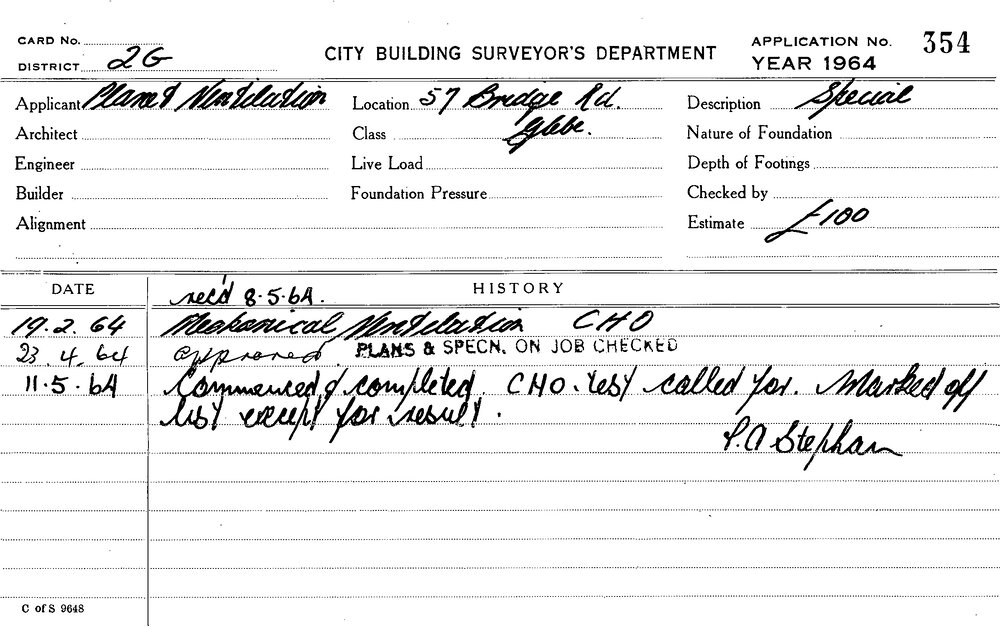 CARD No.
DISTRICT 2G
CITY BUILDING SURVEYOR'S DEPARTMENT
APPLICATION No. 354
YEAR 1964
Applicant Planet Ventilation Location 57 Bridge Rd. Description Special
Architect Class Glebe. Nature of Foundation
Engineer Live Load Depth of Footings
Builder Foundation Pressure Checked by
Alignment Estimate £100
DATE HISTORY
rec'd 8.5.64.
19.2.64 Mechanical Ventilation CHO
23.4.64 approved PLANS & SPECN. ON JOB CHECKED
11.5.64 Commenced & completed. CHO. test called for. Marked off
list except for result.
P.A Stephan
C of S 9648